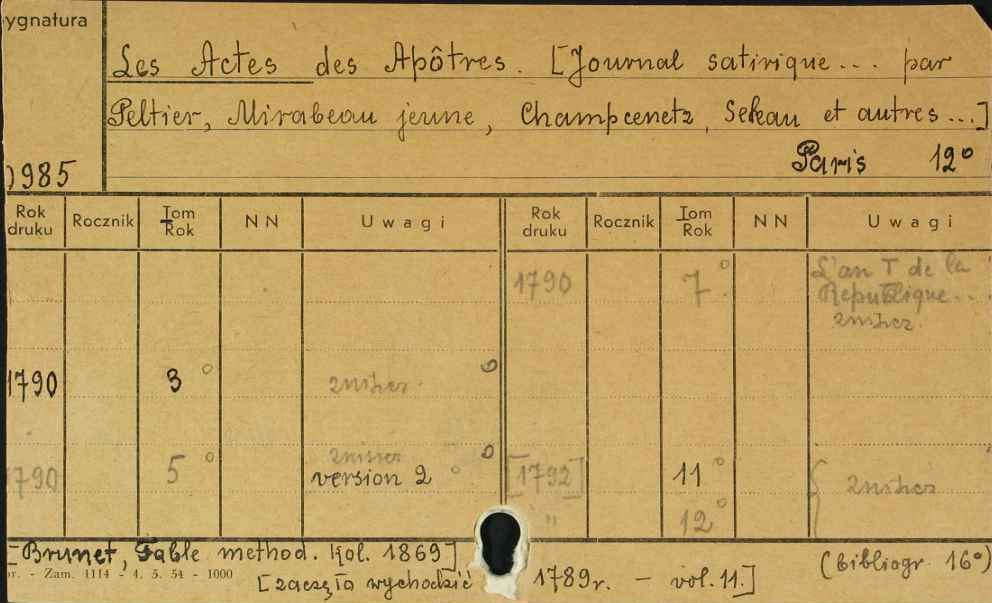 ygnatura
Les Actes des Apôtres. [Journal satirique... par
Peltier, Mirabeau jeune, Champcenetz, Seleau et autres...]
Paris 12°
985
Rok druku Rocznik Tom Rok NN Uwagi Rok druku Rocznik Tom Rok NN Uwagi
1790 7° L'an I de la
République...
zniszcz.
1790 3° zniszcz.
zniszcz
1790 5° version 2 [1792] 11° zniszcz
" 12°
[Brunet, Table method. kol. 1869]
(bibliogr. 16°)
r. - Zam. 1114 - 4. 5. 54 - 1000
[zaczęło wychodzić 1789r. - vol. 11.]